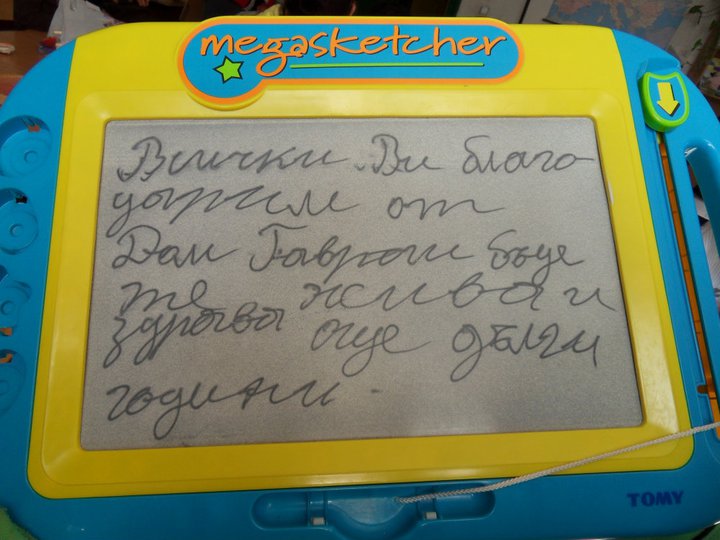 megasketcher
Всички Ви благо-
дарим от
Дом Гаврош бъде
те жива и
здрава още дълги
години.
TOMY